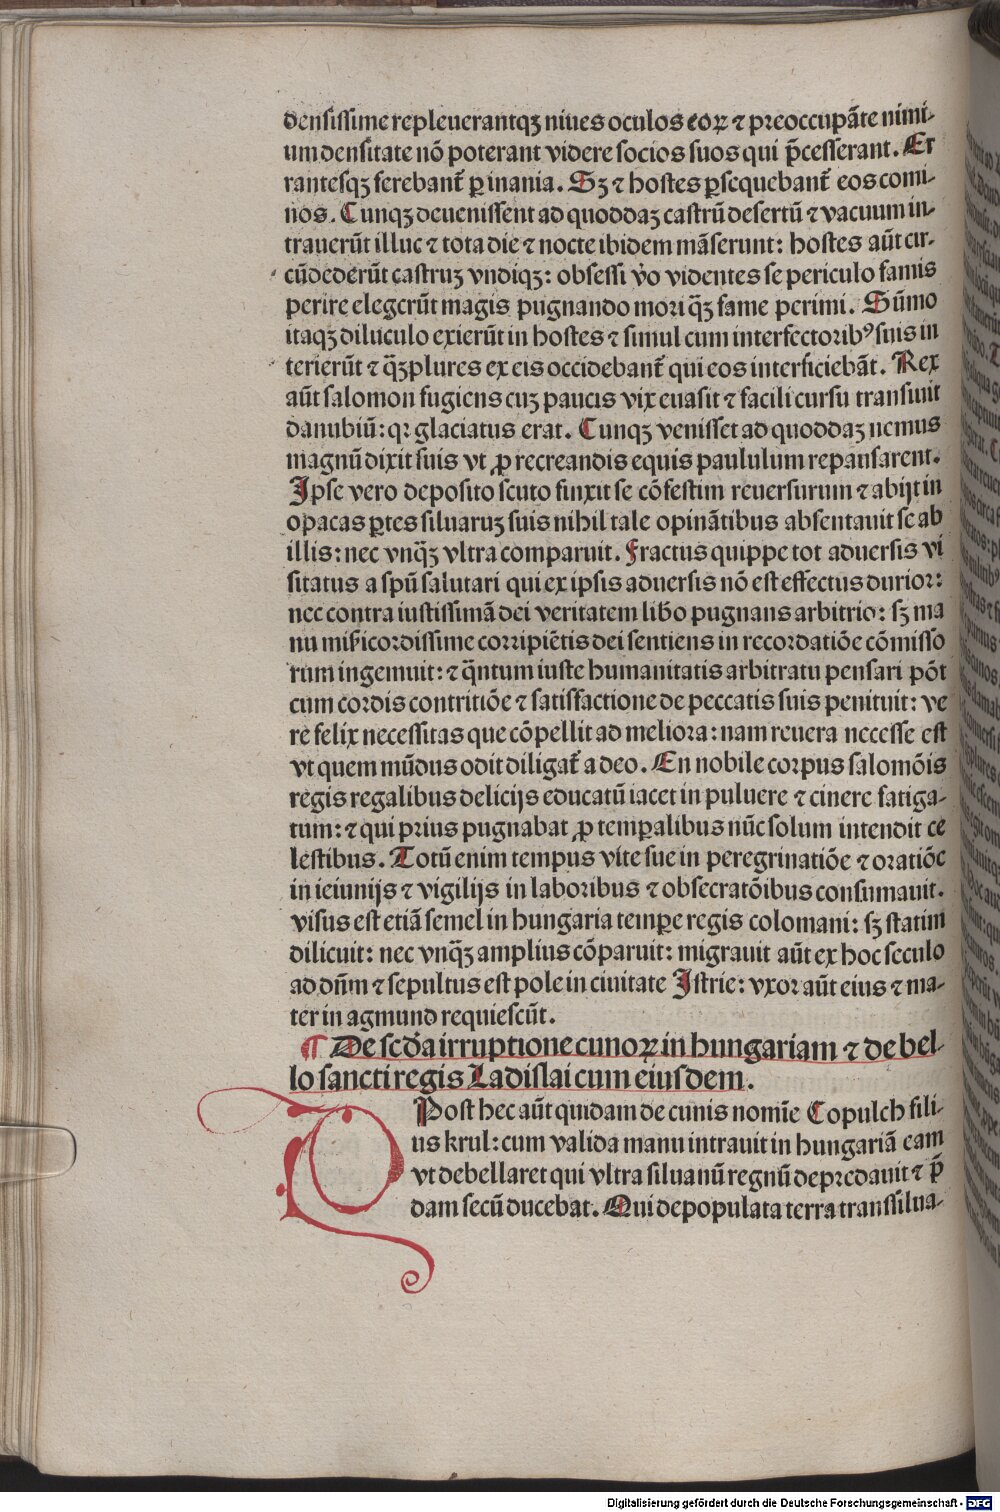 densissime repleuerantqȝ niues oculos eoꝝ ⁊ preoccupāte nimi-
um densitate nō poterant videre socios suos qui p̄cesserant. Er
rantesqȝ ferebant̄ ꝑ inania. Sȝ ⁊ hostes ꝑsequebant̄ eos comi-
nos. Cunqȝ deuenissent ad quoddaȝ castrū desertū ⁊ vacuum in-
trauerūt illuc ⁊ tota die ⁊ nocte ibidem māserunt: hostes aūt cir-
cūdederūt castruȝ vndiqȝ: obsessi v̄o videntes se periculo famis
perire elegerūt magis pugnando mori q̄ȝ fame perimi. Sūmo
itaqȝ diluculo exierūt in hostes ⁊ simul cum interfectoribꝰ suis in
terierūt ⁊ q̄ȝplures ex eis occidebant̄ qui eos interficiebāt. Rex
aūt salomon fugiens cuȝ paucis vix euasit ⁊ facili cursu transiuit
danubiū: qꝛ glaciatus erat. Cunqȝ venisset ad quoddaȝ nemus
magnū dixit suis vt ꝓ recreandis equis paululum repausarent.
Ipse vero deposito scuto finxit se cōfestim reuersurum ⁊ abijt in
opacas ꝑtes siluaruȝ suis nihil tale opinātibus absentauit se ab
illis: nec vnq̄ȝ vltra comparuit. Fractus quippe tot aduersis vi
sitatus a spū salutari qui ex ipsis aduersis nō est effectus durior:
nec contra iustissimā dei veritatem lib̄o pugnans arbitrio: sȝ ma
nu mis̄icordissime corripiētis dei sentiens in recordatiōe cōmisso
rum ingemuit: ⁊ q̄ntum iuste humanitatis arbitratu pensari pōt
cum cordis contritiōe ⁊ satisfactione de peccatis suis penituit: ve
re felix necessitas que cōpellit ad meliora: nam reuera necesse est
vt quem mūdus odit diligat̄ a deo. En nobile corpus salomōis
regis regalibus delicijs educatū iacet in puluere ⁊ cinere fatiga-
tum: ⁊ qui prius pugnabat ꝓ temꝑalibus nūc solum intendit ce
lestibus. Totū enim tempus vite sue in peregrinatiōe ⁊ oratiōe
in ieiunijs ⁊ vigilijs in laboribus ⁊ obsecratōibus consumauit.
visus est etiā semel in hungaria temꝑe regis colomani: sȝ statim
dilicuit: nec vnq̄ȝ amplius cōparuit: migrauit aūt ex hoc seculo
ad dn̄m ⁊ sepultus est pole in ciuitate Istrie: vxor aūt eius ⁊ ma-
ter in agmund requiescūt.
¶ De sc̄da irruptione cunoꝝ in hungariam ⁊ de bel-
lo sancti regis Ladislai cum eiusdem.
Post hec aūt quidam de cunis nomīe Copulch fili-
us krul: cum valida manu intrauit in hungariā eam
vt debellaret qui vltra siluanū regnū depredauit ⁊ p̄
dam secū ducebat. Qui depopulata terra transsilua-
Digitalisierung gefördert durch die Deutsche Forschungsgemeinschaft - DFG